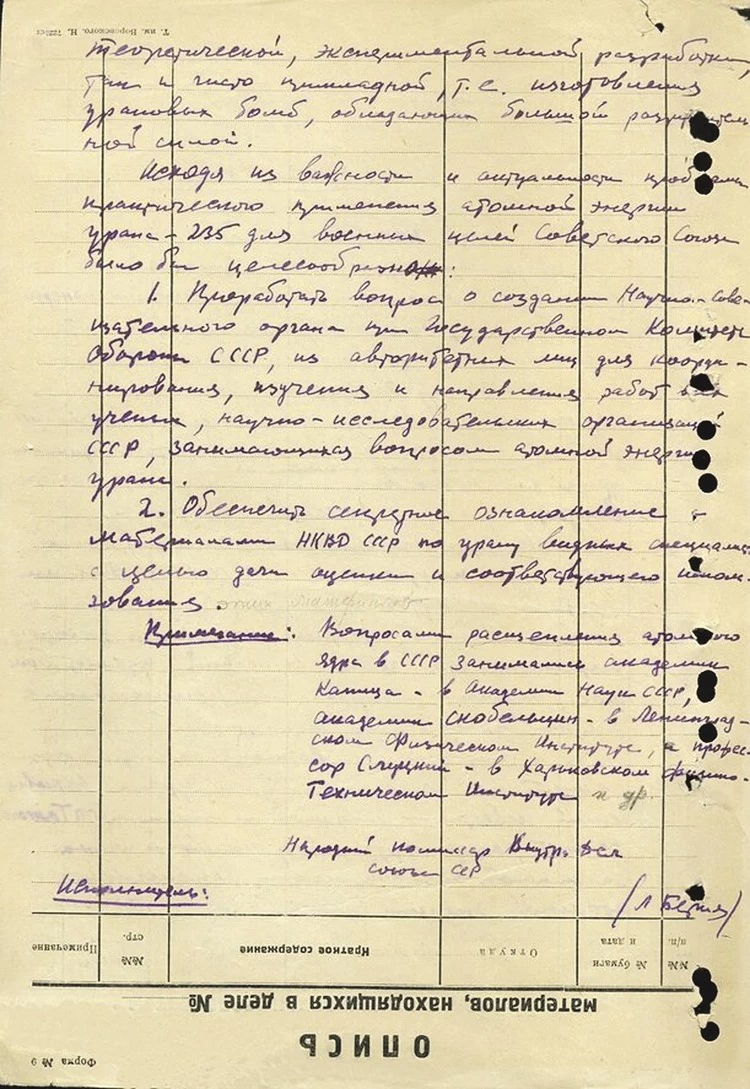 Т. им. Воровского. Н.
теоретической, экспериментальной разработки,
так и чисто прикладной, т.е. изготовления
урановых бомб, обладающих большой разрушитель
ной силой.
Исходя из важности и актуальности проблемы
практического применения атомной энергии
урана-235 для военных целей Советского Союза
было бы целесообразно:
1. Проработать вопрос о создании Научно-сове-
щательного органа при Государственном Комитете
Обороны СССР, из авторитетных лиц для коорди-
нирования, изучения и направления работ всех
ученых, научно-исследовательских организаций
СССР, занимающихся вопросом атомной энергии
урана.
2. Обеспечить секретное ознакомление с
материалами НКВД СССР по урану видных специалис
с целью дачи оценки и соответствующего исполь-
зования. этих материалов
Примечание: Вопросами расщепления атомного
ядра в СССР занимались академик
Капица - в Академии Наук СССР,
академик Скобельцин - в Ленинград-
ском Физическом Институте, и профес-
сор Слуцкий - в Харьковском физико-
Техническом Институте и др.
Народный комиссар Внутр. Дел
союза ССР
(Л Берия)
Исполнитель:
Примечание
№№ стр.
Краткое содержание
Откуда
№ бумаги и дата
№№ п/п.
материалов, находящихся в деле №
ОПИСЬ
Форма № 9